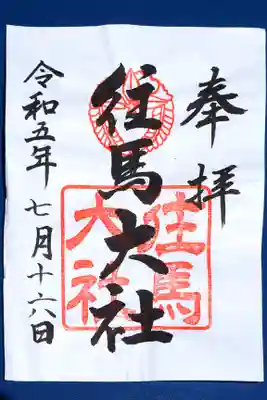 奉拝
往馬大社
令和五年七月十六日
往馬
大社